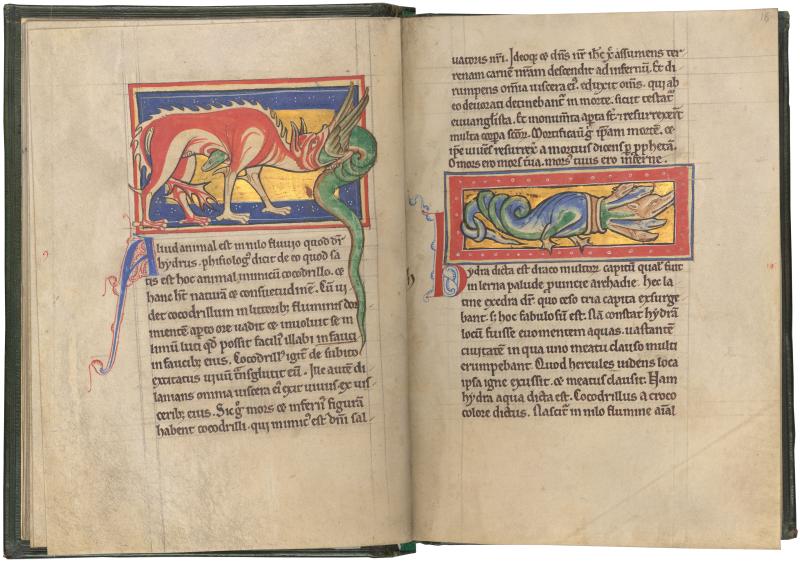 Aliud animal est in nilo fluvio quod dr̄
hydrus. phisiologˀ dicit de eo quod sa
tis est hoc animal inimicū cocodrillo. ⁊
hanc ht̄ naturā ⁊ consuetudinē. Cū vi
det cocodrillum in littorib; fluminis dor
mientē apto ore vadit ⁊ involuit se in
limū luti q̇d possit faciliˀ illabi in fauci
in faucib; eius. Cocodrillˀ igit̄ de subito
excitatus vivum t̄nsglutit eū. Ille autē di
lanians omnia viscera eiˀ exit vivus ex vis
cerib; eius. Sic ḡ mors ⁊ infernˀ figurā
habent cocodrilli. qui inimicˀ est dn̄i sal
18
vatoris nr̄i. Ideoq; ⁊ dn̄s nr̄ ihc̄ x̄ assumens ter
renam carnē nr̄am descendit ad infernū. Et di
rumpens omnia viscera eiˀ. eduxit om̄s. qui ab
eo devorati detinebant̄ in morte. sicut testat̄
evvanglista. Et monum̄ta apta st̄ ⁊ resurrexer̄t
multa corpa sc̄or̄. Mortificavit ḡ ipam mortē. ⁊
ipe vivēs resurrex̄ a mortuis dicens p pphetā.
O mors ero mors tua. morsˀ tuus ero inferne.
hydra dicta est draco multor̄ capitū qualˀ fuit
in lerna palude pvincie archadie. hec la
tine exedra dr̄ quo ceso tria capita exsurge
bant. s; hoc fabulosū est. Nā constat hydrā
locū fuisse evomentem aquas. vastantē
civitatē in qua uno meatu clauso multi
erumpebant. Quod hercules videns loca
ipsa igne exussit. ⁊ meatus clausit. Nam
hydra aqua dicta est. Cocodrillus a croco
colore dictus. Nascit̄ in nilo flumine aīal